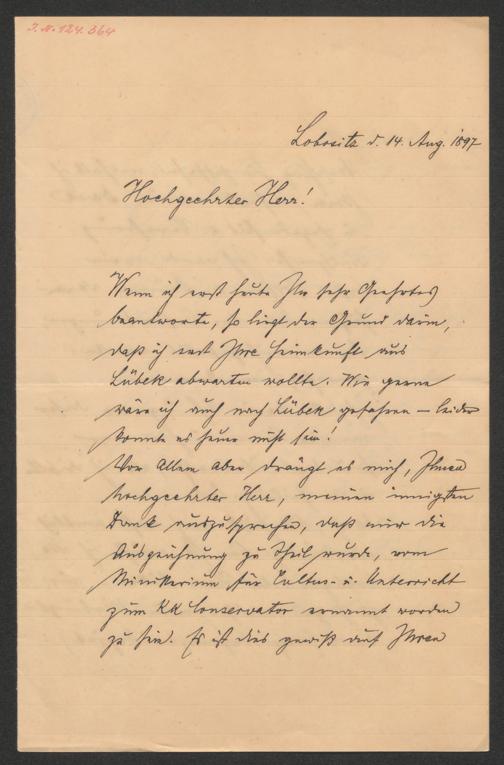 J.N. 124.364
Lobositz d. 14. Aug. 1897
Hochgeehrter Herr!
Wenn ich erst heute Ihr sehr Geehrtes
beantworte, so liegt der Grund darin,
daß ich erst Ihre Heimkunft aus
Lübek abwarten wollte. Wie gerne
wäre ich auch nach Lübek gefahren – leider
konnte es heuer nicht sein!
Vor Allem aber drängt es mich, Ihnen
hochgeehrter Herr, meinen innigsten
Dank auszusprechen, daß mir die
Auszeichnung zu Theil wurde, vom
Ministerium für Cultus- u. Unterricht
zum KK Conservator ernannt worden
zu sein. Es ist dies gewiß auf Ihren